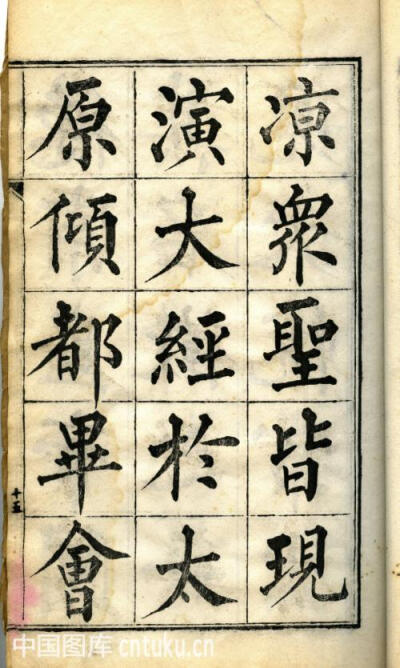 凉衆聖皆現
演大經於太
原傾都畢會
十五
中国图库 cntuku.cn